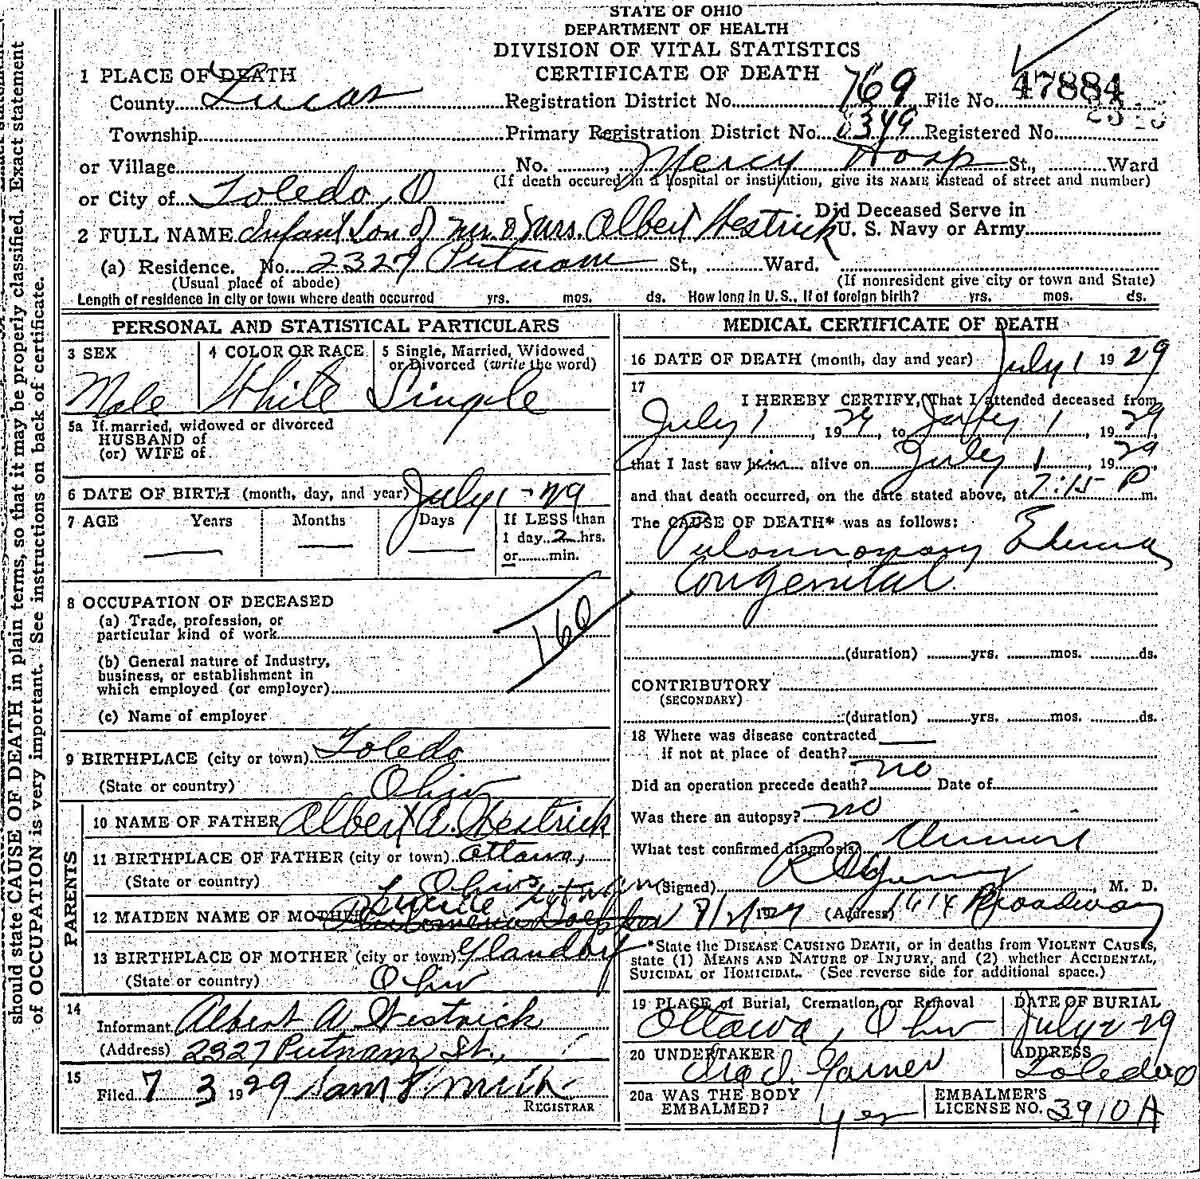 STATE OF OHIO
DEPARTMENT OF HEALTH
DIVISION OF VITAL STATISTICS
CERTIFICATE OF DEATH
1 PLACE OF DEATH
County Lucas Registration District No. 769 File No. 47884
Township Primary Registration District No. 8349 Registered No.
or Village No. Mercy Hosp St., Ward
(If death occured in a hospital or institution, give its NAME instead of street and number)
or City of Toledo, O
Did Deceased Serve in
U. S. Navy or Army
2 FULL NAME Infant Son of Mr. & Mrs. Albert Hestrick
(a) Residence. No. 2327 Putnam St., Ward.
(Usual place of abode) (If nonresident give city or town and State)
Length of residence in city or town where death occurred yrs. mos. ds. How long in U.S., if of foreign birth? yrs. mos. ds.
PERSONAL AND STATISTICAL PARTICULARS
3 SEX 4 COLOR OR RACE 5 Single, Married, Widowed
or Divorced (write the word)
Male White Single
5a If married, widowed or divorced
HUSBAND of
(or) WIFE of
6 DATE OF BIRTH (month, day, and year) July 1 - 29
7 AGE Years Months Days If LESS than
1 day 2 hrs.
or min.
8 OCCUPATION OF DECEASED
(a) Trade, profession, or
particular kind of work
160
(b) General nature of Industry,
business, or establishment in
which employed (or employer)
(c) Name of employer
9 BIRTHPLACE (city or town) Toledo
(State or country) Ohio
PARENTS
10 NAME OF FATHER Albert A. Hestrick
11 BIRTHPLACE OF FATHER (city or town) Ottawa,
(State or country) Ohio
12 MAIDEN NAME OF MOTHER Lucille
13 BIRTHPLACE OF MOTHER (city or town) Glandorf
Ohio
14
Informant Albert A. Hestrick
(Address) 2327 Putnam St.,
15
Filed 7 3 1929 Sam
REGISTRAR
MEDICAL CERTIFICATE OF DEATH
16 DATE OF DEATH (month, day and year) July 1 1929
17
I HEREBY CERTIFY, That I attended deceased from
July 1, 1929, to July 1, 1929,
that I last saw him alive on July 1, 1929
and that death occurred, on the date stated above, at 7:15 P m.
The CAUSE OF DEATH* was as follows:
Pulonmonary Edema
Congenital
(duration) yrs. mos. ds.
CONTRIBUTORY
(SECONDARY)
(duration) yrs. mos. ds.
18 Where was disease contracted
if not at place of death?
Did an operation precede death? no Date of
Was there an autopsy? no
What test confirmed diagnosis?
(Signed) , M. D.
1929 (Address) 1614 Broadway
*State the DISEASE CAUSING DEATH, or in deaths from VIOLENT CAUSES,
state (1) MEANS AND NATURE OF INJURY, and (2) whether ACCIDENTAL,
SUICIDAL or HOMICIDAL. (See reverse side for additional space.)
19 PLACE of Burial, Cremation, or Removal DATE OF BURIAL
Ottawa, Ohio July 2-29
20 UNDERTAKER ADDRESS
Garner Toledo O
20a WAS THE BODY
EMBALMED? Yes
EMBALMER'S
LICENSE NO. 3910A
should state CAUSE OF DEATH in plain terms, so that it may be properly classified. Exact statement
of OCCUPATION is very important. See instructions on back of certificate.